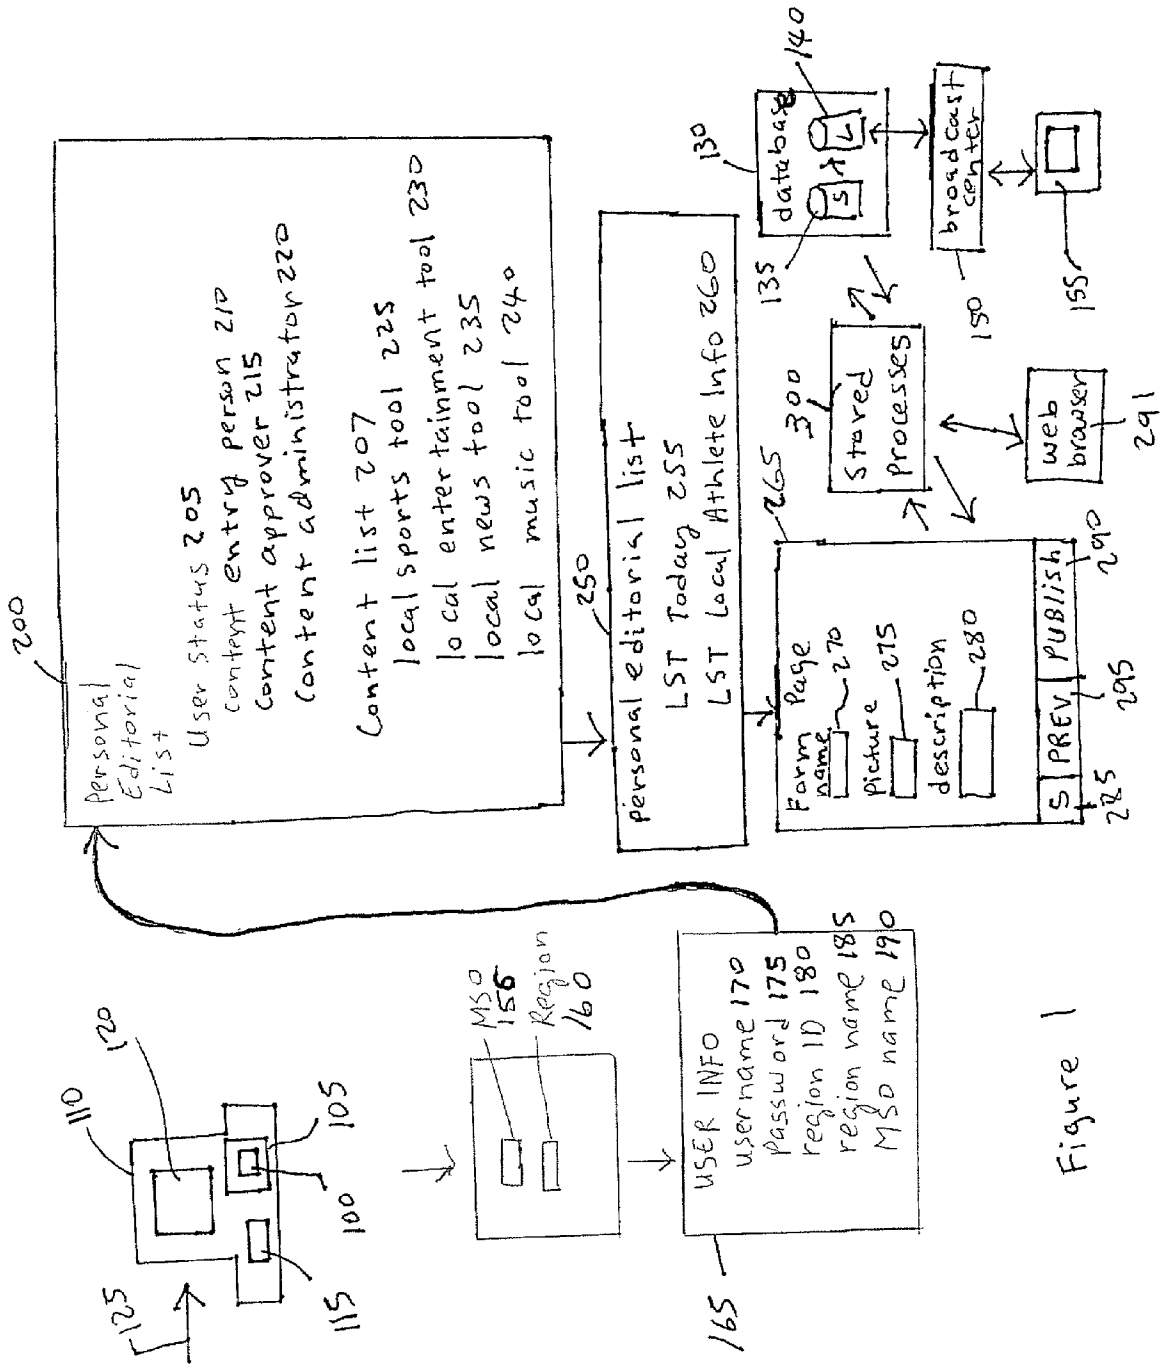 125
110
120
115
100
105
MSO
155
Region
160
165
USER INFO
username 170
Password 175
region ID 180
region name 185
MSO name 190
200
Personal
Editorial
List
User status 205
content entry person 210
Content approver 215
Content administrator 220
Content list 207
local sports tool 225
local entertainment tool 230
local news tool 235
local music tool 240
250
personal editorial list
LST Today 255
LST Local Athlete Info 260
265
Form Page
name
270
picture
275
description
280
S
PREV
PUBlish
285
295
290
300
Stored
Processes
web
browser
291
130
database
135
S
L
140
broadcast
center
150
155
Figure 1